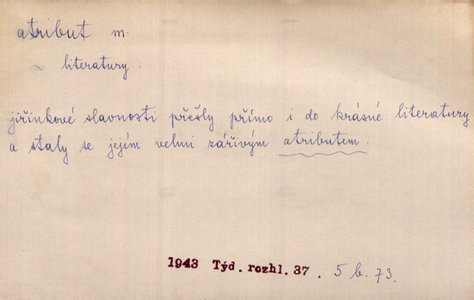 atribut m.
~ literatury.
jiřinkové slavnosti přešly přímo i do krásné literatury
a staly se jejím velmi zářivým atributem.
1943 Týd. rozhl. 37. 5 b. 73.